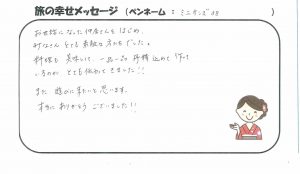 旅の幸せメッセージ (ペンネーム : ミニオンズ 08 )
お世話になった仲居さんをはじめ、
みなさん とても 素敵な 方たちでした。
料理も 美味しくて、一品一品 丹精 込めて 作って
いるのが とても 伝わって きました!!
また 遊びに 来たいと 思います。
本当に ありがとう ございました!!